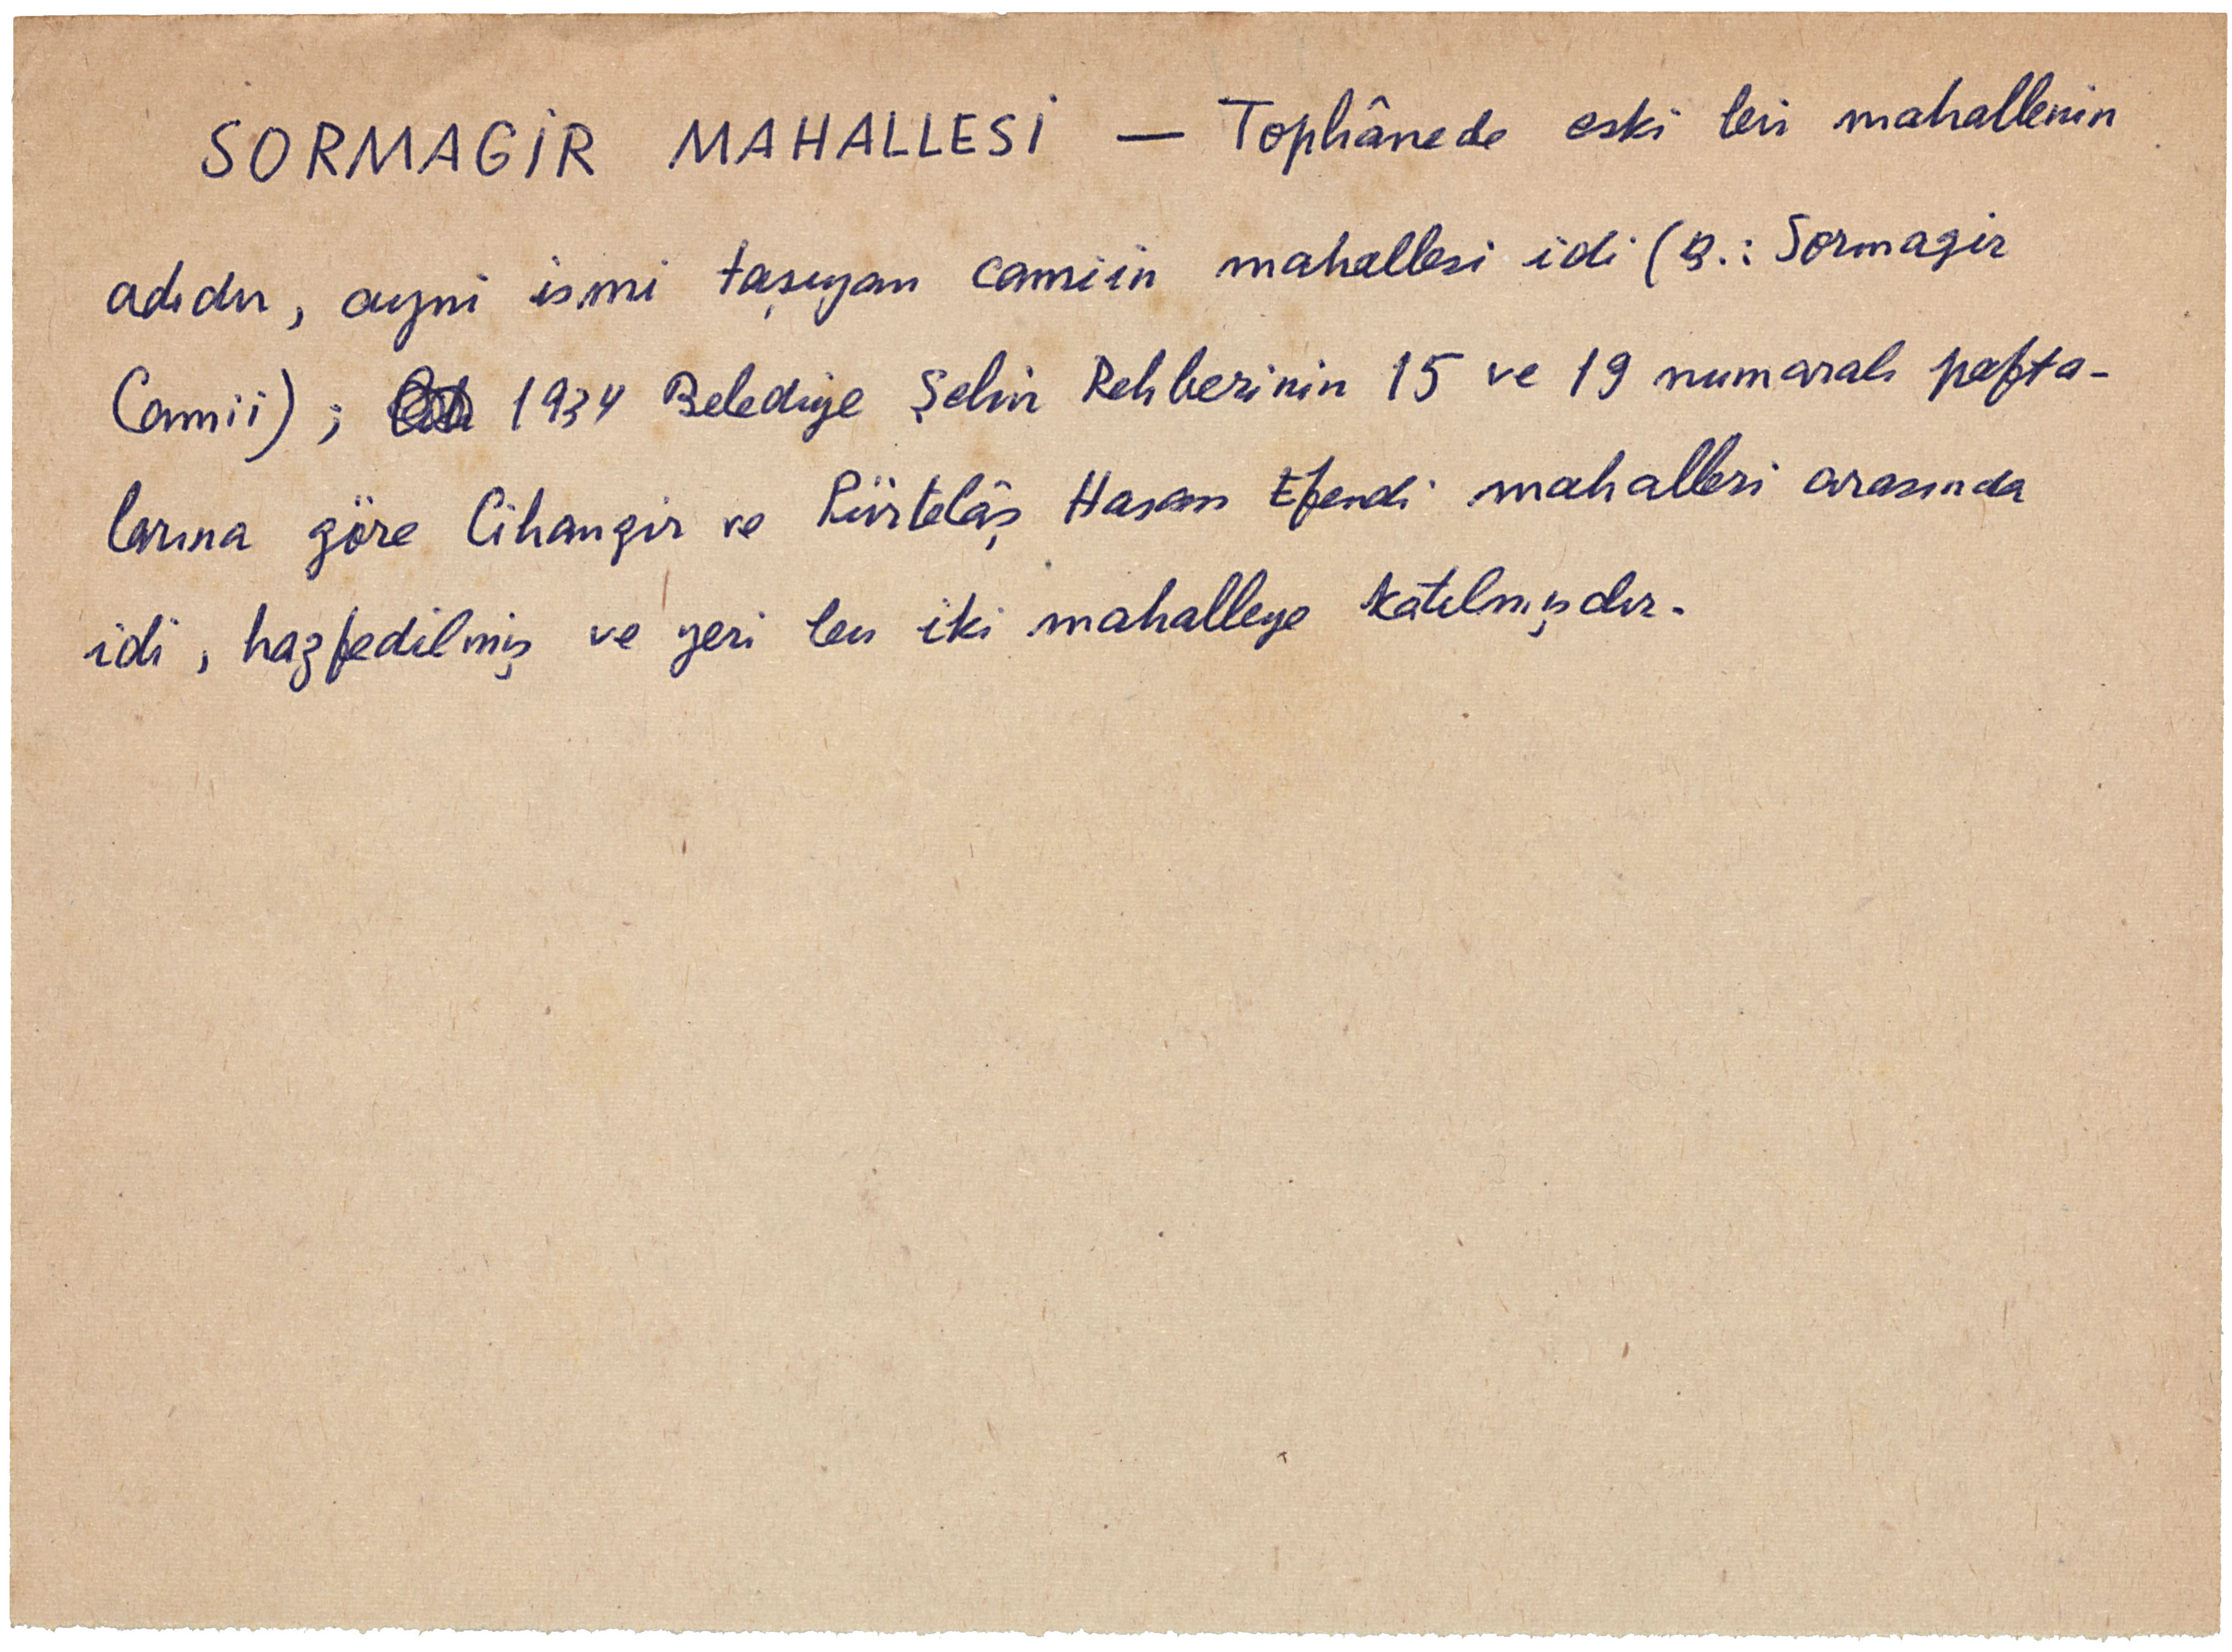 SORMAGİR MAHALLESİ — Tophânede eski bir mahallenin
adıdır, ayni ismi taşıyan camiin mahallesi idi (B.: Sormagir
Camii); 1934 Belediye Şehir Rehberinin 15 ve 19 numaralı pafta-
larına göre Cihangir ve Pürtelâş Hasan Efendi mahalleri arasında
idi, hazfedilmiş ve yeri bu iki mahalleye katılmışdır.